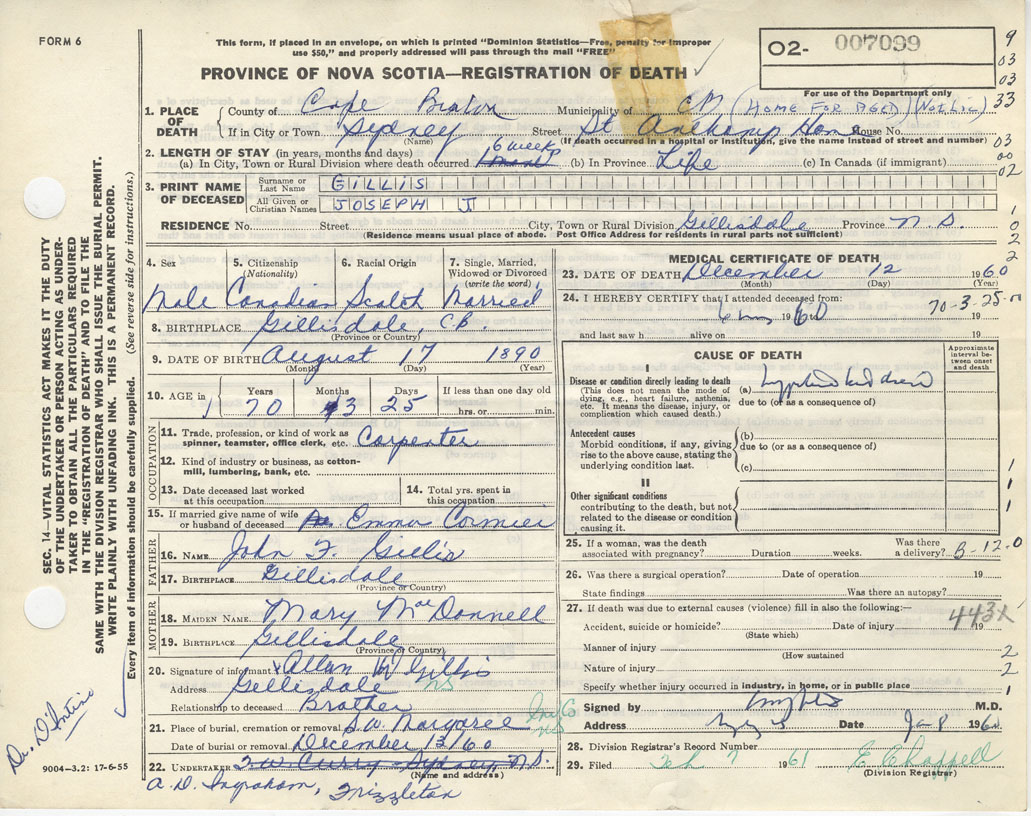 FORM 6
This form, if placed in an envelope, on which is printed "Dominion Statistics—Free, penalty for improper
use $50," and properly addressed will pass through the mail "FREE"
O2- 007099
For use of the Department only
PROVINCE OF NOVA SCOTIA—REGISTRATION OF DEATH
9
03
03
33
03
00
02
1
0
2
2
1. PLACE OF DEATH
County of Cape Breton Municipality of C B (HOME FOR AGED) (Not Lic)
If in City or Town Sydney Street St Home House No.
(Name) (If death occurred in a hospital or institution, give the name instead of street and number)
2. LENGTH OF STAY (in years, months and days)
(a) In City, Town or Rural Division where death occurred 6 weeks (b) In Province Life (c) In Canada (if immigrant)
3. PRINT NAME OF DECEASED
Surname or Last Name GILLIS
All Given or Christian Names JOSEPH J
RESIDENCE No. Street City, Town or Rural Division Gillisdale Province N.S.
(Residence means usual place of abode. Post Office Address for residents in rural parts not sufficient)
4. Sex 5. Citizenship (Nationality) 6. Racial Origin 7. Single, Married, Widowed or Divorced (write the word)
Male Canadian Scotch Married
8. BIRTHPLACE Gillisdale, C.B.
(Province or Country)
9. DATE OF BIRTH August 17 1890
(Month) (Day) (Year)
10. AGE in Years Months Days If less than one day old
70 3 25 hrs. or min.
OCCUPATION
11. Trade, profession, or kind of work as
spinner, teamster, office clerk, etc. Carpenter
12. Kind of industry or business, as cotton-
mill, lumbering, bank, etc.
13. Date deceased last worked
at this occupation
14. Total yrs. spent in
this occupation
15. If married give name of wife
or husband of deceased Emma Cormier
FATHER
16. NAME John F. Gillis
17. BIRTHPLACE Gillisdale
(Province or Country)
MOTHER
18. MAIDEN NAME Mary MacDonnell
19. BIRTHPLACE Gillisdale
(Province or Country)
20. Signature of informant Allan Gillis
Address Gillisdale NS
Relationship to deceased Brother
21. Place of burial, cremation or removal S.W. Margaree Inv Co NS
Date of burial or removal December 13/60
22. UNDERTAKER T W Curry - Sydney, N.S.
(Name and address)
A. D. Ingraham, Frizzleton
MEDICAL CERTIFICATE OF DEATH
23. DATE OF DEATH December 12 1960
(Month) (Day) (Year)
24. I HEREBY CERTIFY that I attended deceased from:
1960 70-3-25
19
and last saw h alive on 19
CAUSE OF DEATH
Approximate interval between onset and death
I
Disease or condition directly leading to death
(This does not mean the mode of
dying, e.g., heart failure, asthenia,
etc. It means the disease, injury, or
complication which caused death.)
(a)
due to (or as a consequence of)
Antecedent causes
Morbid conditions, if any, giving
rise to the above cause, stating the
underlying condition last.
(b)
due to (or as a consequence of)
(c)
II
Other significant conditions
contributing to the death, but not
related to the disease or condition
causing it.
1
1
1
25. If a woman, was the death
associated with pregnancy? Duration weeks. Was there a delivery? B-12-0
26. Was there a surgical operation? Date of operation 19
State findings Was there an autopsy?
27. If death was due to external causes (violence) fill in also the following:—
443X
Accident, suicide or homicide? Date of injury 19
(State which)
Manner of injury 2
(How sustained
Nature of injury 2
Specify whether injury occurred in industry, in home, or in public place 1
Signed by M.D.
Address Date Ja 8 196
28. Division Registrar's Record Number
29. Filed Feb 7 1961 E Chappell
(Division Registrar)
SEC. 14—VITAL STATISTICS ACT MAKES IT THE DUTY
OF THE UNDERTAKER OR PERSON ACTING AS UNDER-
TAKER TO OBTAIN ALL THE PARTICULARS REQUIRED
IN THE "REGISTRATION OF DEATH" AND TO FILE THE
SAME WITH THE DIVISION REGISTRAR WHO SHALL ISSUE THE BURIAL PERMIT.
WRITE PLAINLY WITH UNFADING INK. THIS IS A PERMANENT RECORD.
Every item of information should be carefully supplied. (See reverse side for instructions.)
9004-3.2: 17-6-55